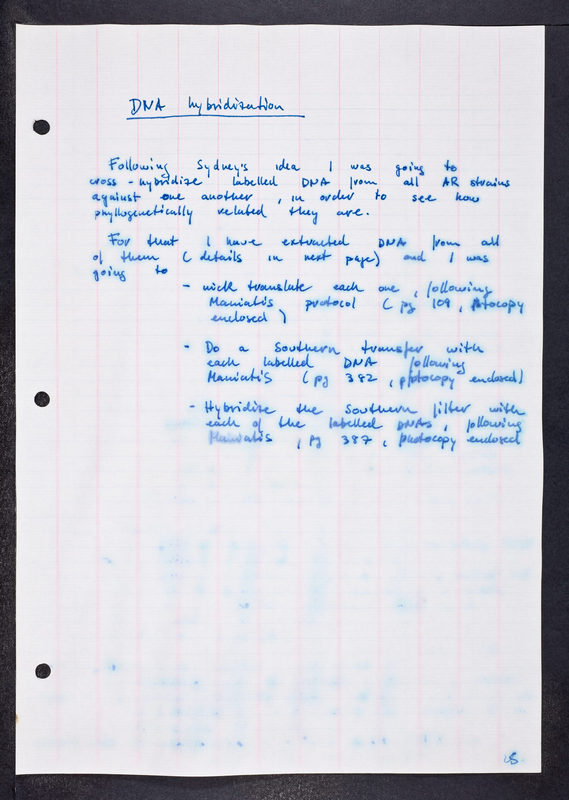 DNA hybridization
Following Sydney's idea I was going to
cross-hybridize labelled DNA from all AR strains
against one another, in order to see how
phyllogenetically related they are.
For that I have extracted DNA from all
of them (details in next page) and I was
going to
- nick translate each one, following
Maniatis protocol (pg 109, fotocopy
enclosed)
- Do a Southern transfer with
each labelled DNA following
Maniatis (pg 382, photocopy enclosed)
- Hybridize the Southern filter with
each of the labelled DNAs, following
Maniatis, pg 387, photocopy enclosed